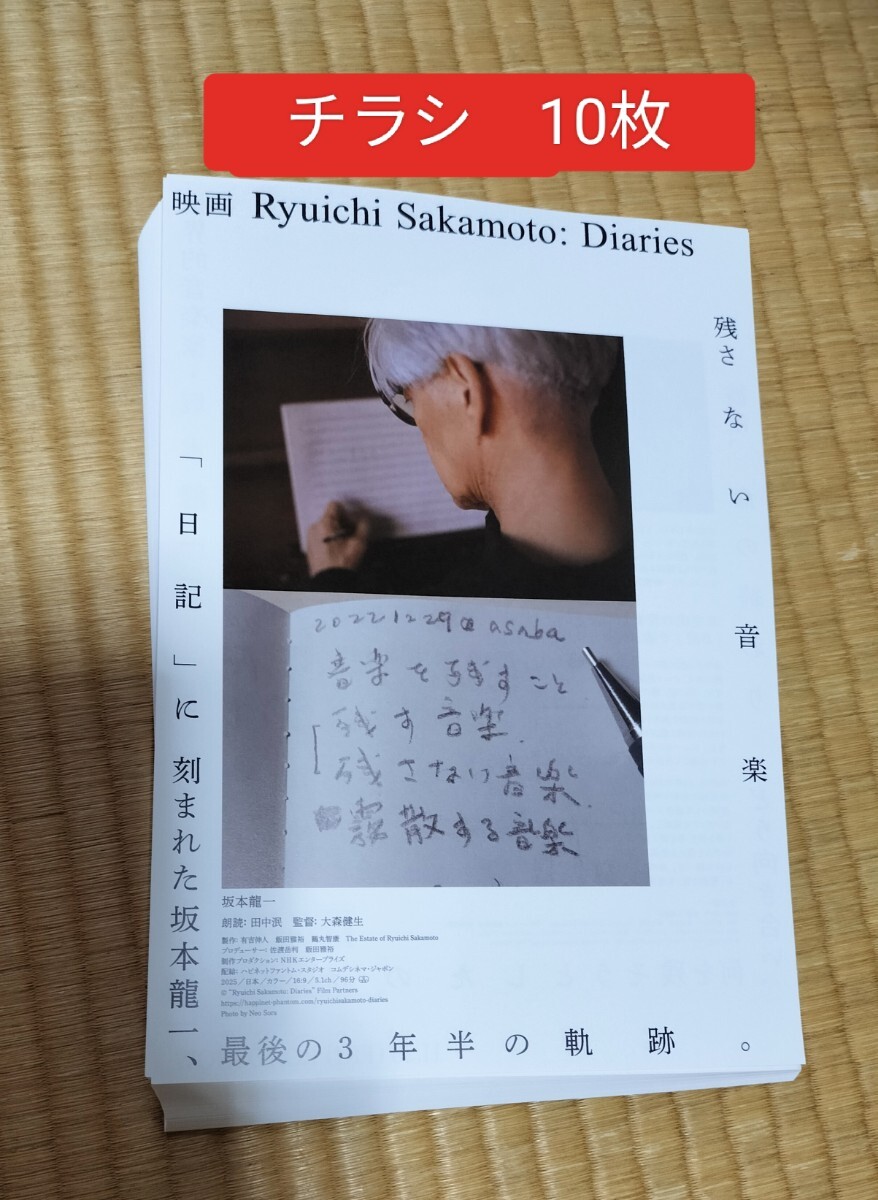 チラシ　10枚
映画 Ryuichi Sakamoto: Diaries
残さない音楽
「日記」に刻まれた坂本龍一、
最後の3年半の軌跡。
20221229@asaba
音楽を残すこと
残す音楽.
残さない音楽.
霧散する音楽
坂本龍一
朗読: 田中泯　監督: 大森健生
製作: 有吉伸人　飯田雅裕　鶴丸智康　The Estate of Ryuichi Sakamoto
プロデューサー: 佐渡岳利　飯田雅裕
制作プロダクション: NHKエンタープライズ
配給: ハピネットファントム・スタジオ　コムデシネマ・ジャポン
2025／日本／カラー／16:9／5.1ch／96分 G
© "Ryuichi Sakamoto: Diaries" Film Partners
https://happinet-phantom.com/ryuichisakamoto-diaries
Photo by Neo Sora